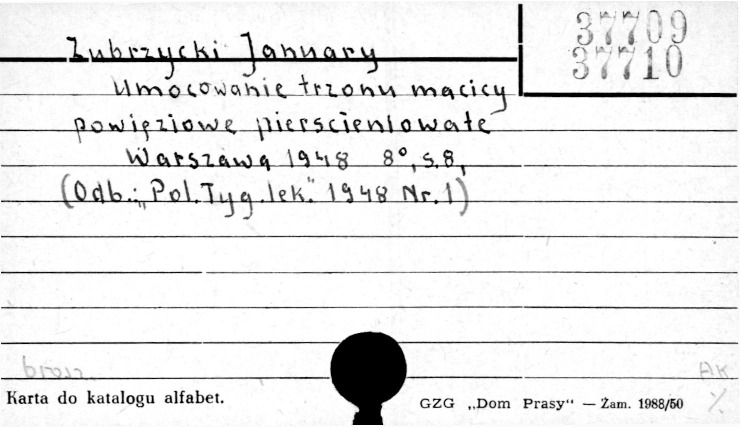 37709
37710
Zubrzycki January
Umocowanie trzonu macicy
powięziowe pierscieniowate
Warszawa 1948 8°, s.8,
(Odb.: „Pol.Tyg.lek." 1948 Nr.1)
brosz.
AK
Karta do katalogu alfabet.
GZG „Dom Prasy" — Zam. 1988/50